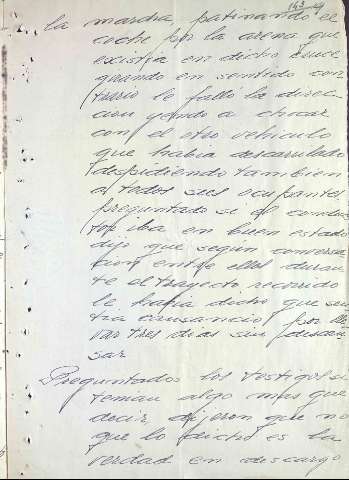 143
la marcha, patinando el
coche por la arena que
existia en dicho cruce
quando en sentido con
trario le falló la direc
cion yendo a chocar
con el otro vehiculo
que habia descarrulado
despidiendo tambien
a todos sus ocupantes
preguntado si el conduc
tor iba en buen estado
dijo que según conversa
cion entre ellos duran
te el trayecto recorrido
le habia dicho que sen
tia cansancio por lle
var tres dias sin descan
sar
Preguntados los testigos si
tenian algo mas que
decir, dijeron que no
que lo dicho es la
verdad en descargo